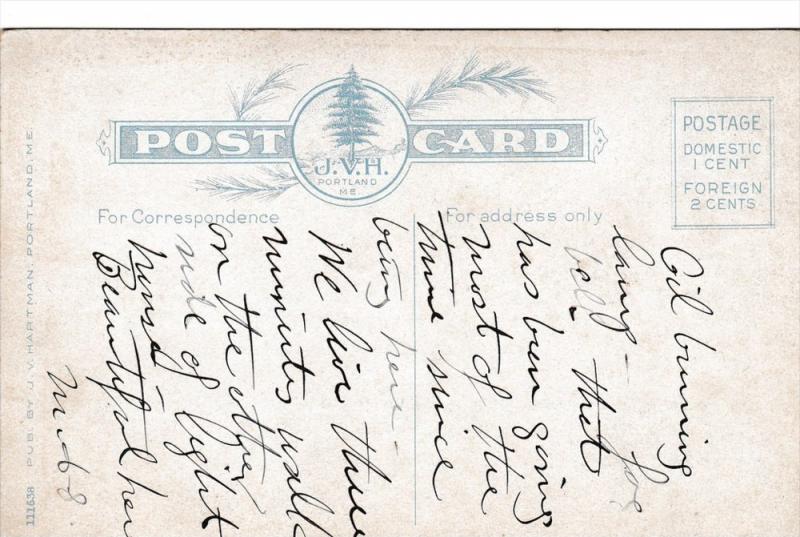 POST CARD
J.V.H.
PORTLAND
ME.
POSTAGE
DOMESTIC
1 CENT
FOREIGN
2 CENTS
For Correspondence
For address only
Oil burning
lamp - fog
bell that
has been going
most of the
time since
being here -
We live three
minutes walk
on the other
side of light
house -
Beautiful here
111638 PUB. BY J. V. HARTMAN, PORTLAND, ME.